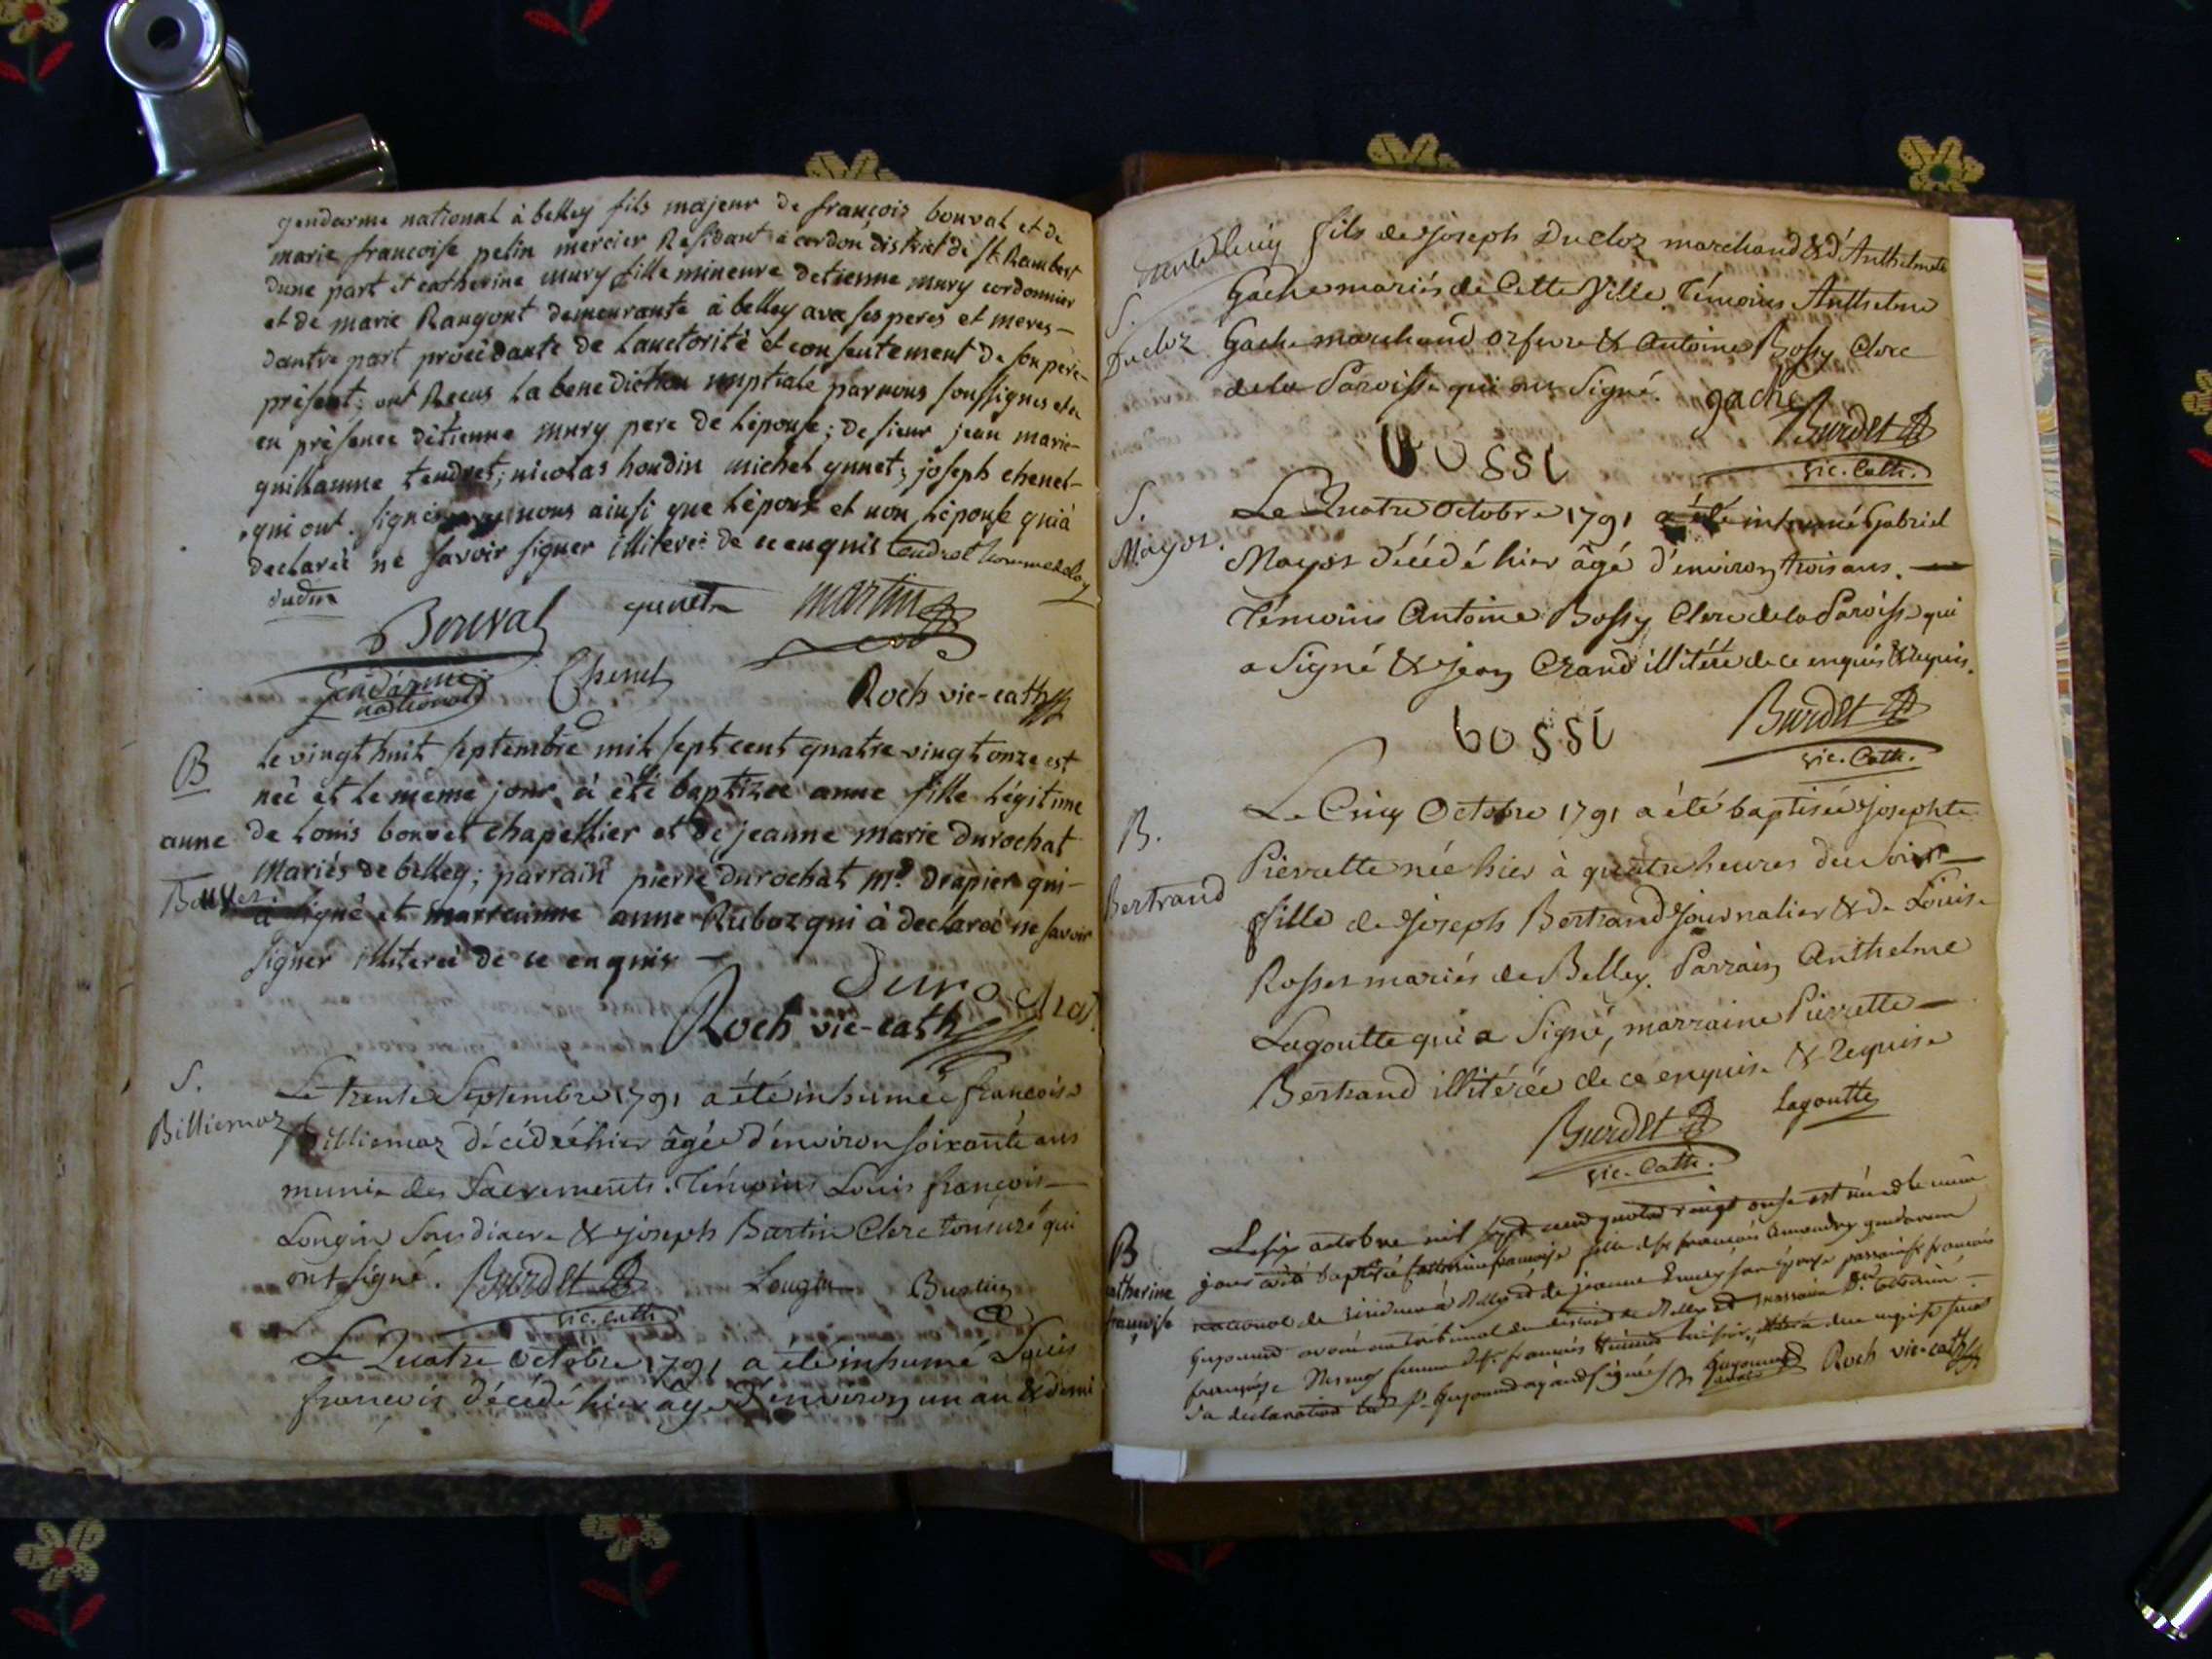 gendarme national à belley fils majeur de françois bonval et de
marie francoise petin mercier Residant à cordon district de St Rambert
dune part et catherine mury fille mineure detienne mury cordonnier
et de marie Rangont demeurante à belley avec ses peres et meres
dautre part procédante de Lauctorité et consentement de son père
présent; ont Recus La benediction nuptiale par nous soussignés et a
en présence détienne mury pere de Lépouse; de sieur jean marie
guillaume tendret; nicolas houdin michel gunet; joseph chenel
qui ont signé nous ainsi que Lépoux et non Lépouse qui à
declareé ne savoir signer illitereé de ce enquis tendret
Bonval gunet martin
gendarme national Chenel Roch vic-cath
B
Le vingt huit septembre mil sept cent quatre vingt onze est
neé et le même jour à été baptizeé anne fille Légitime
anne de Louis bouvet chapellier et de jeanne marie durochat
mariés de belley; parrain pierre durochat md. drapier qui
Bouvet à signé et marrainne anne Ruboz qui à declareé ne savoir
signer illitereé de ce enquis
Durochat
Roch vic-cath
S.
Billiemaz
Le trente Septembre 1791 a été inhumée françoise
Billiemaz décédée hier âgée d'environ soixante ans
munie des Sacrements. Témoins Louis françois
Longin Sousdiacre & joseph Bastin Clerc tonsuré qui
ont signé. Burdet Longin Bastin
vic. cath.
Le Quatre Octobre 1791 a été inhumé Louis
francois décédé hier âgé d'environ un an & demi
fils de Joseph Ducloz marchand & d'Anthelmette
S.
Ducloz
Gache mariés de Cette Ville. Témoins Anthelme
Gache marchand orfevre & Antoine Bossy Clerc
de la Paroisse qui ont Signé. gache
bossi Burdet
vic. Cath.
S.
Mayot.
Le Quatre Octobre 1791 a été inhumé Gabriel
Mayot décédé hier âgé d'environ trois ans.
Témoins Antoine Bossy Clerc de la Paroisse qui
a Signé & Jean Crand illitéré de ce enquis & requis.
bossi Burdet
vic. Cath.
B.
Bertrand
Le Cinq Octobre 1791 a été baptisée Josephte
Pierrette née hier à quatre heures du Soir
fille de Joseph Bertrand Journalier & de Louise
Rosset mariés de Belley. Parrain Anthelme
Lagoutte qui a Signé, marraine Pierrette
Bertrand illitérée de ce enquise & requise
Burdet Lagoutte
vic. Cath.
B
catherine
françoise
Le six octobre mil sept cend quatre vingt onse est née et le même
jour a été baptisée catherine françoise fille de sr françois gendarme
national de residence à Belley et de jeanne son épouse parrain sr françois
Guyonnet avoué au tribunal du district de Belley et marraine
françoise femme de sr françois
sa declaration sr Guyonnet ayant signé Guyonnet Roch vic-cath